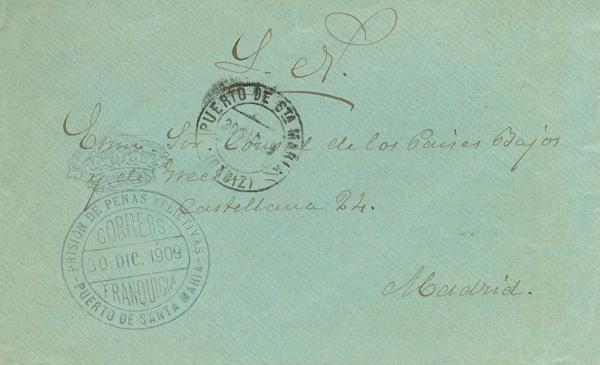 S. N.
PUERTO DE STA MARIA
(CADIZ)
Exmo Sor. Consul de los Paises Bajos
y de Grecia
Castellana 24.
PRISIÓN DE PENAS AFLICTIVAS
CORREOS
30. DIC. 1909
FRANQUICIA
PUERTO DE SANTA MARIA
Madrid.